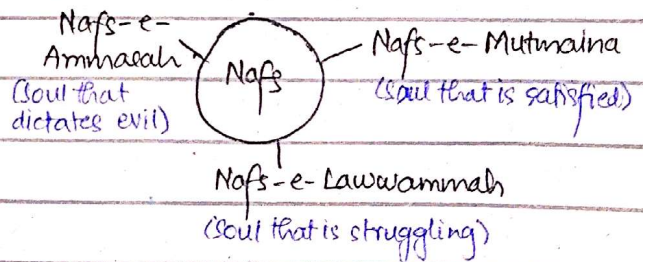 Nafs-e-
Ammaraah
(Soul that
dictates evil)
Nafs
Nafs-e-Mutmaina
(Soul that is satisfied)
Nafs-e-Lawwammah
(Soul that is struggling)